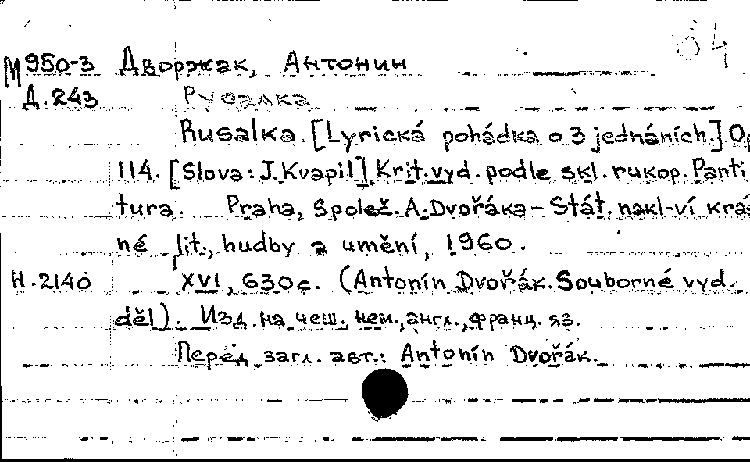 М950-3 Дворжак, Антонин 04
Д.243 Русалка
Rusalka. [Lyrická pohádka o 3 jednáních.] Op
114. [Slova: J. Kvapil]. Krit. vyd. podle skl. rukop. Parti
tura. Praha, Společ. A. Dvořáka - Stát. nakl-ví krás
né lit., hudby a umění, 1960.
Н.2140 XVI, 630 с. (Antonín Dvořák. Souborné vyd.
děl). Изд. на чеш. нем., англ., франц. яз.
Перед загл. авт.: Antonín Dvořák.